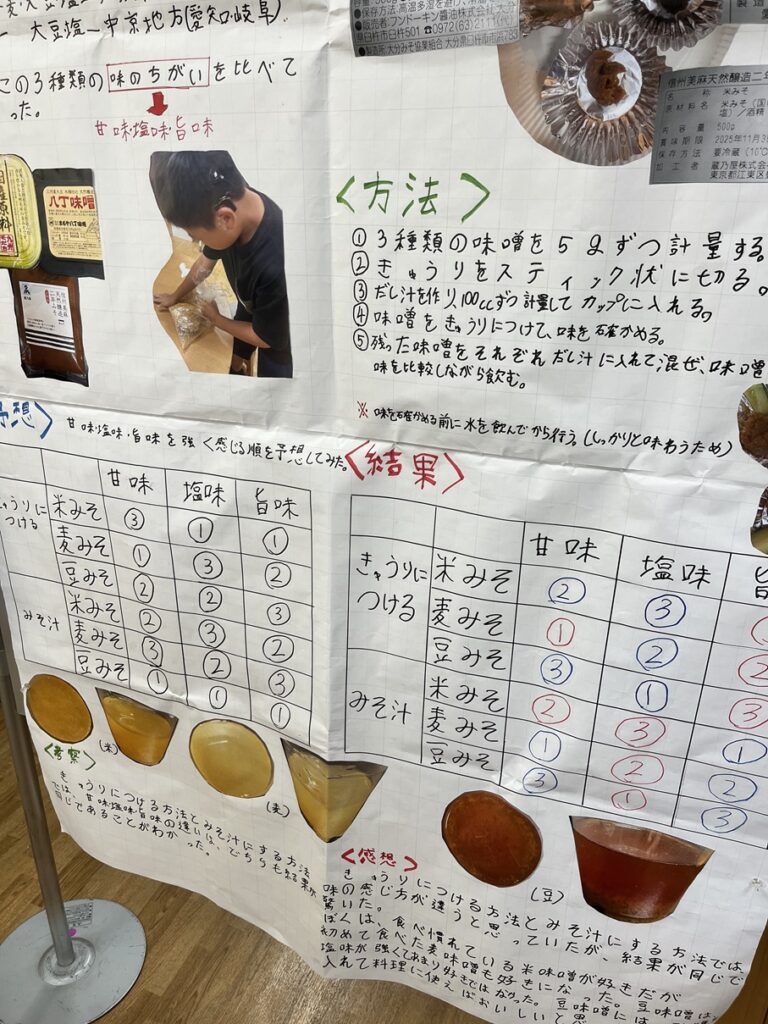 大豆塩－中京地方(愛知・岐阜)
この3種類の味のちがいを比べて
った。
甘味・塩味・旨味
八丁味噌
保存方法 高温多湿を避け
販売者 フンドーキン醤油株式
県臼杵市臼杵501 ☎0972(63)2111(
製造所 大分みそ協業組合 大分県臼杵市
信州美麻天然醸造二年
名　称　米みそ
原材料名　米みそ
塩)／酒精
内容量　500g
賞味期限　2025年11月
保存方法　要冷蔵(10℃
加工者　蔵乃屋株式
東京都江東区
<方法>
① 3種類の味噌を5gずつ計量する。
② きゅうりをスティック状に切る。
③ だし汁を作り、100ccずつ計量してカップに入れる。
④ 味噌をきゅうりにつけて、味を確かめる。
⑤ 残った味噌をそれぞれだし汁に入れて混ぜ、味噌
味を比較しながら飲む。
※ 味を確かめる前に水を飲んでから行う。(しっかりと味わうため)
予想>
甘味・塩味・旨味を強く感じる順を予想してみた。
甘味 塩味 旨味
きゅうりにつける 米みそ ③ ① ①
麦みそ ① ③ ②
豆みそ ② ② ③
みそ汁 米みそ ② ③ ②
麦みそ ③ ② ③
豆みそ ① ① ①
<結果>
甘味 塩味 旨
きゅうりにつける 米みそ ② ③
麦みそ ① ② ②
豆みそ ③ ①
みそ汁 米みそ ② ③ ③
麦みそ ① ② ①
豆みそ ③ ① ②
③
(米)
(麦)
(豆)
<考察>
きゅうりにつける方法とみそ汁にする方法
では、甘味・塩味・旨味の違いは、どちらも結果が
同じであることがわかった。
<感想>
きゅうりにつける方法とみそ汁にする方法では、
味の感じ方が違うと思っていたが、結果が同じで
驚いた。
ぼくは、食べ慣れている米味噌が好きだが
初めて食べた麦味噌も好きになった。豆味噌は、
塩味が強くてあまり好きではなかった。豆味噌には
入れて料理に使えばおいしいと思